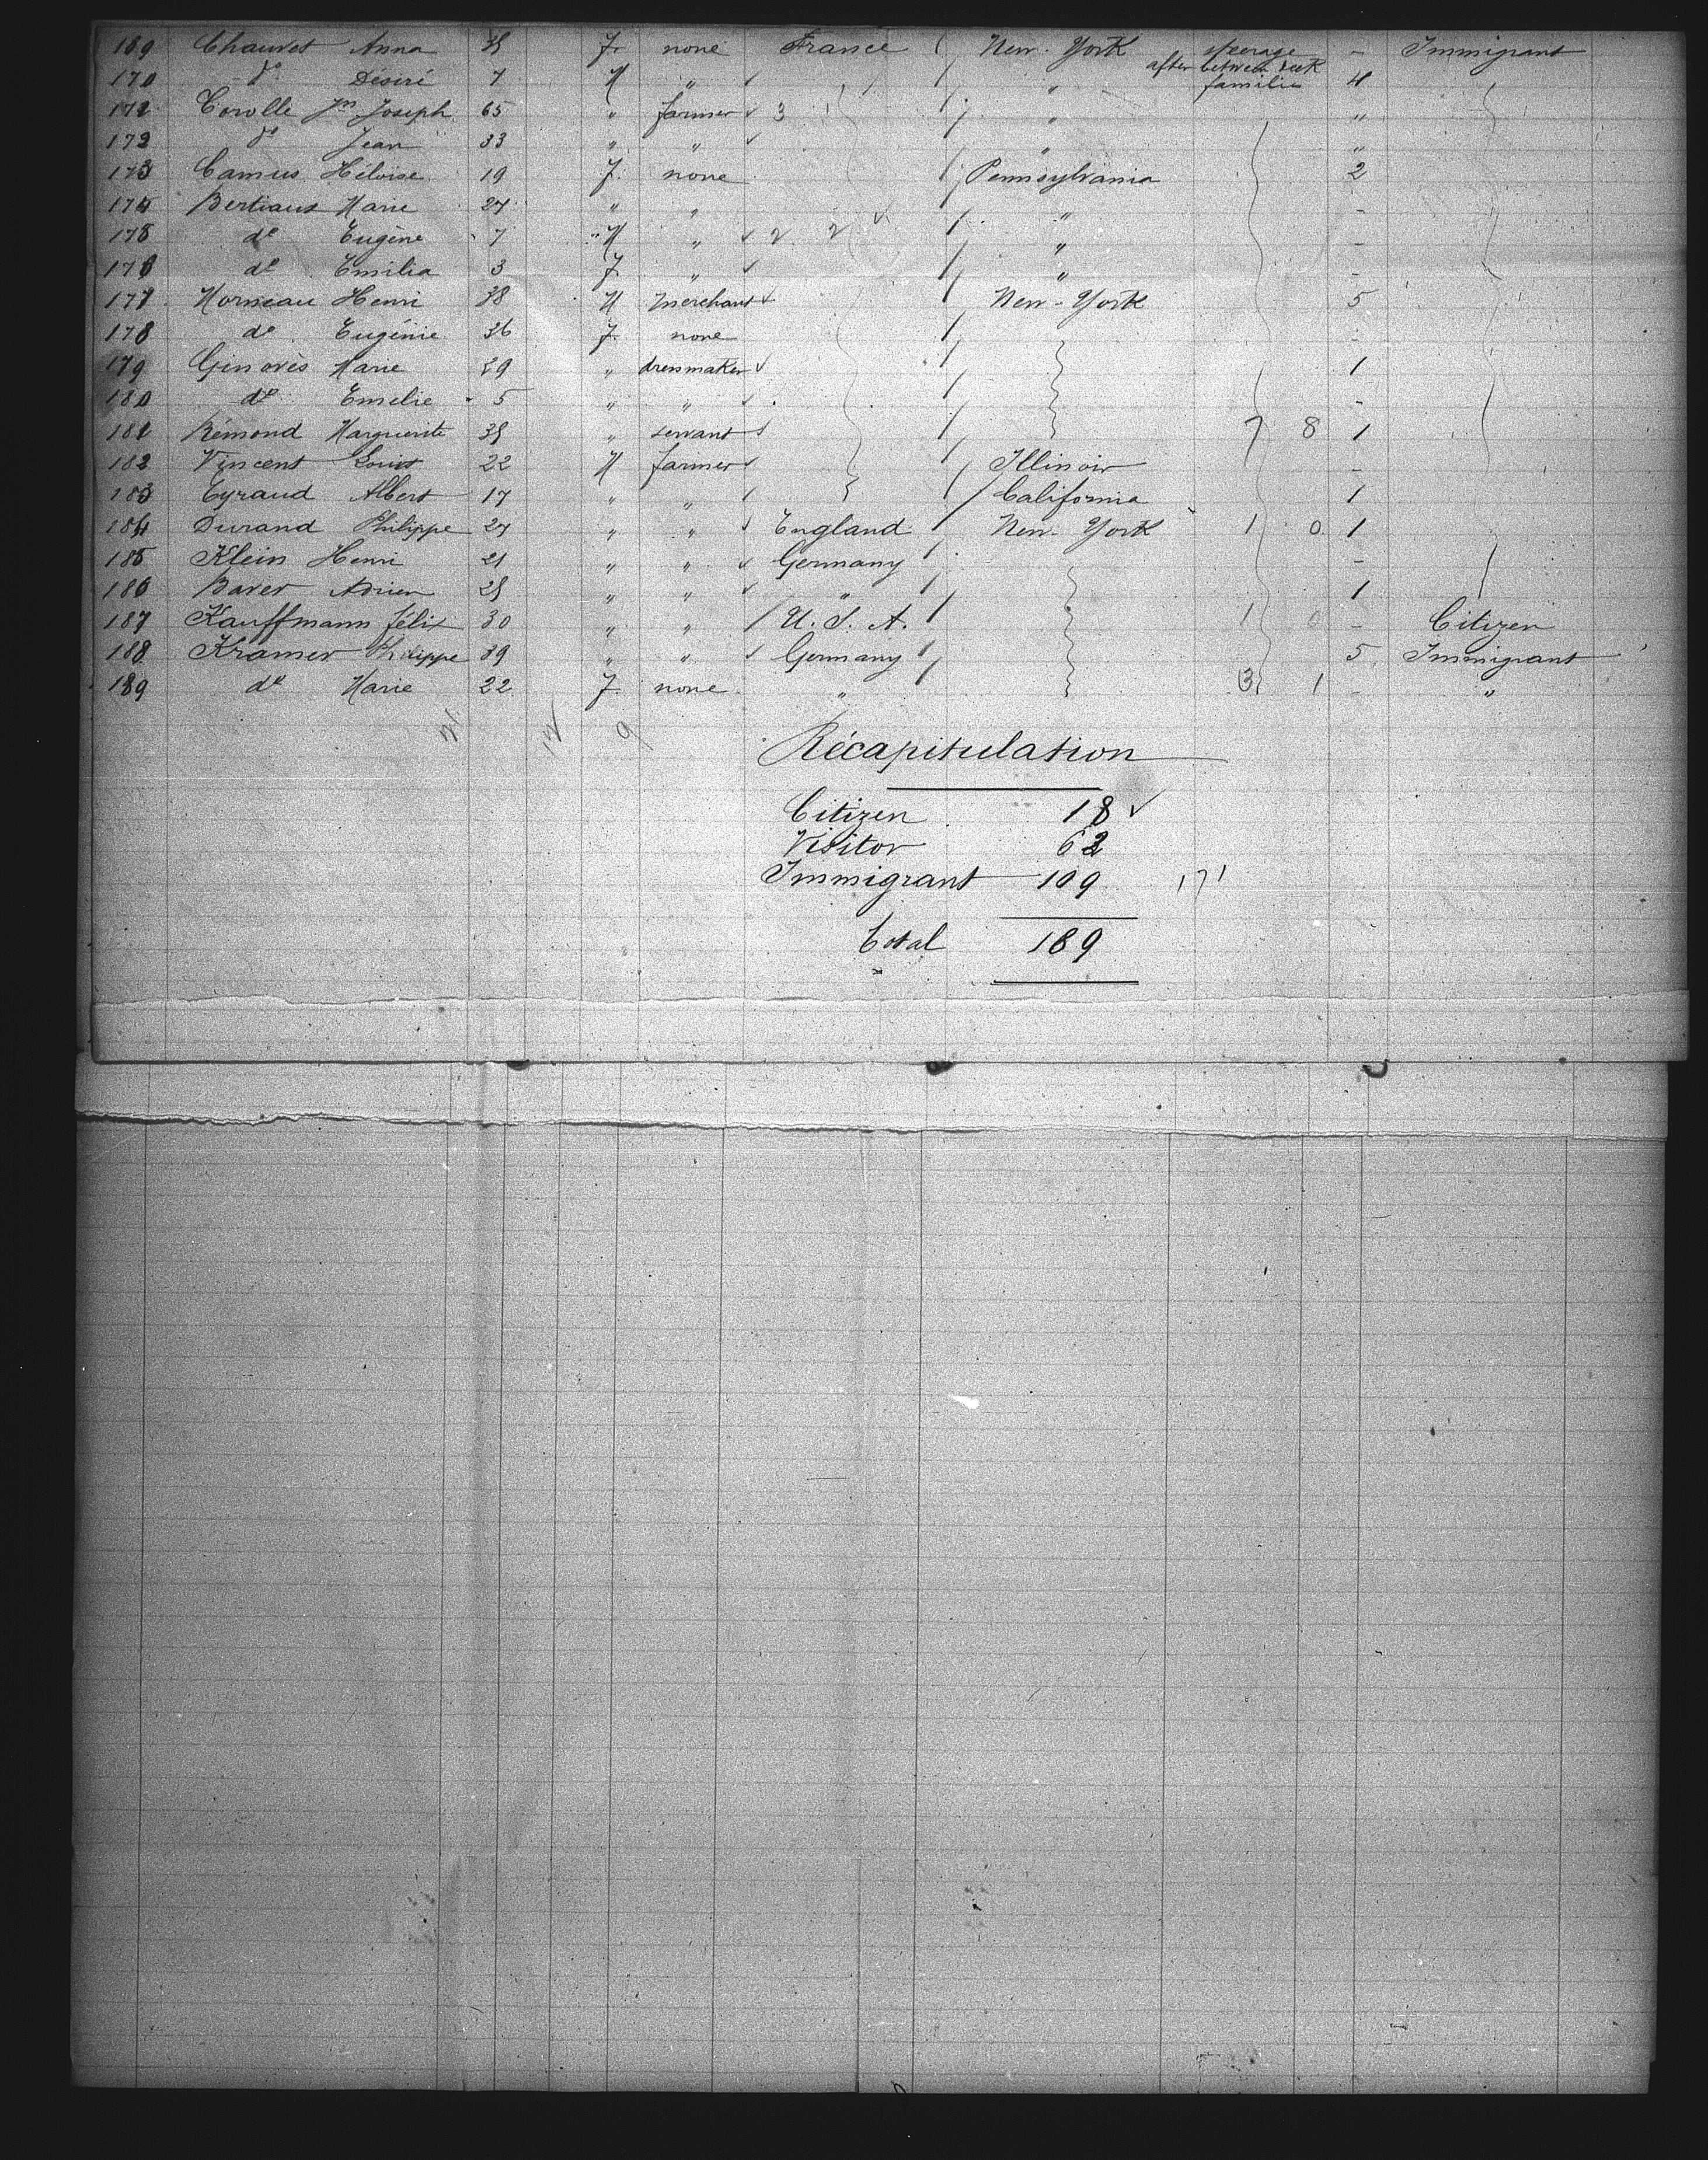 169 Chauvet Anna 35 F. none France New-York steerage - Immigrant
170 do Désiré 7 M " " after between deck families 4
171 Corolle Jn Joseph 65 " farmer 3 " "
172 do Jean 33 " " " "
173 Camus Héloïse 19 F. none Pennsylvania 2
174 Bertiaux Marie 27 " " " -
175 do Eugène 7 M " 2 2 " -
176 do Emilia 3 F. " " -
177 Morneau Henri 38 M merchant New-York 5
178 do Eugénie 36 F. none -
179 Ginovès Marie 29 " dressmaker 1
180 do Emelie 5 " " -
181 Rémond Marguerite 35 " servant 7 8 1
182 Vincent Louis 22 M farmer Illinois -
183 Eyraud Albert 17 " " California 1
184 Durand Philippe 27 " " England New-York 1 0 1
185 Klein Henri 21 " " Germany -
186 Baver Adrien 25 " " " 1
187 Kauffmann Félix 30 " " U. S. A. 1 0 - Citizen
188 Kramer Philippe 39 " " Germany 5 Immigrant
189 do Marie 22 F none " 3 1 - "
21 12 9
Récapitulation
Citizen 18
Visitor 62
Immigrant 109 171
Total 189